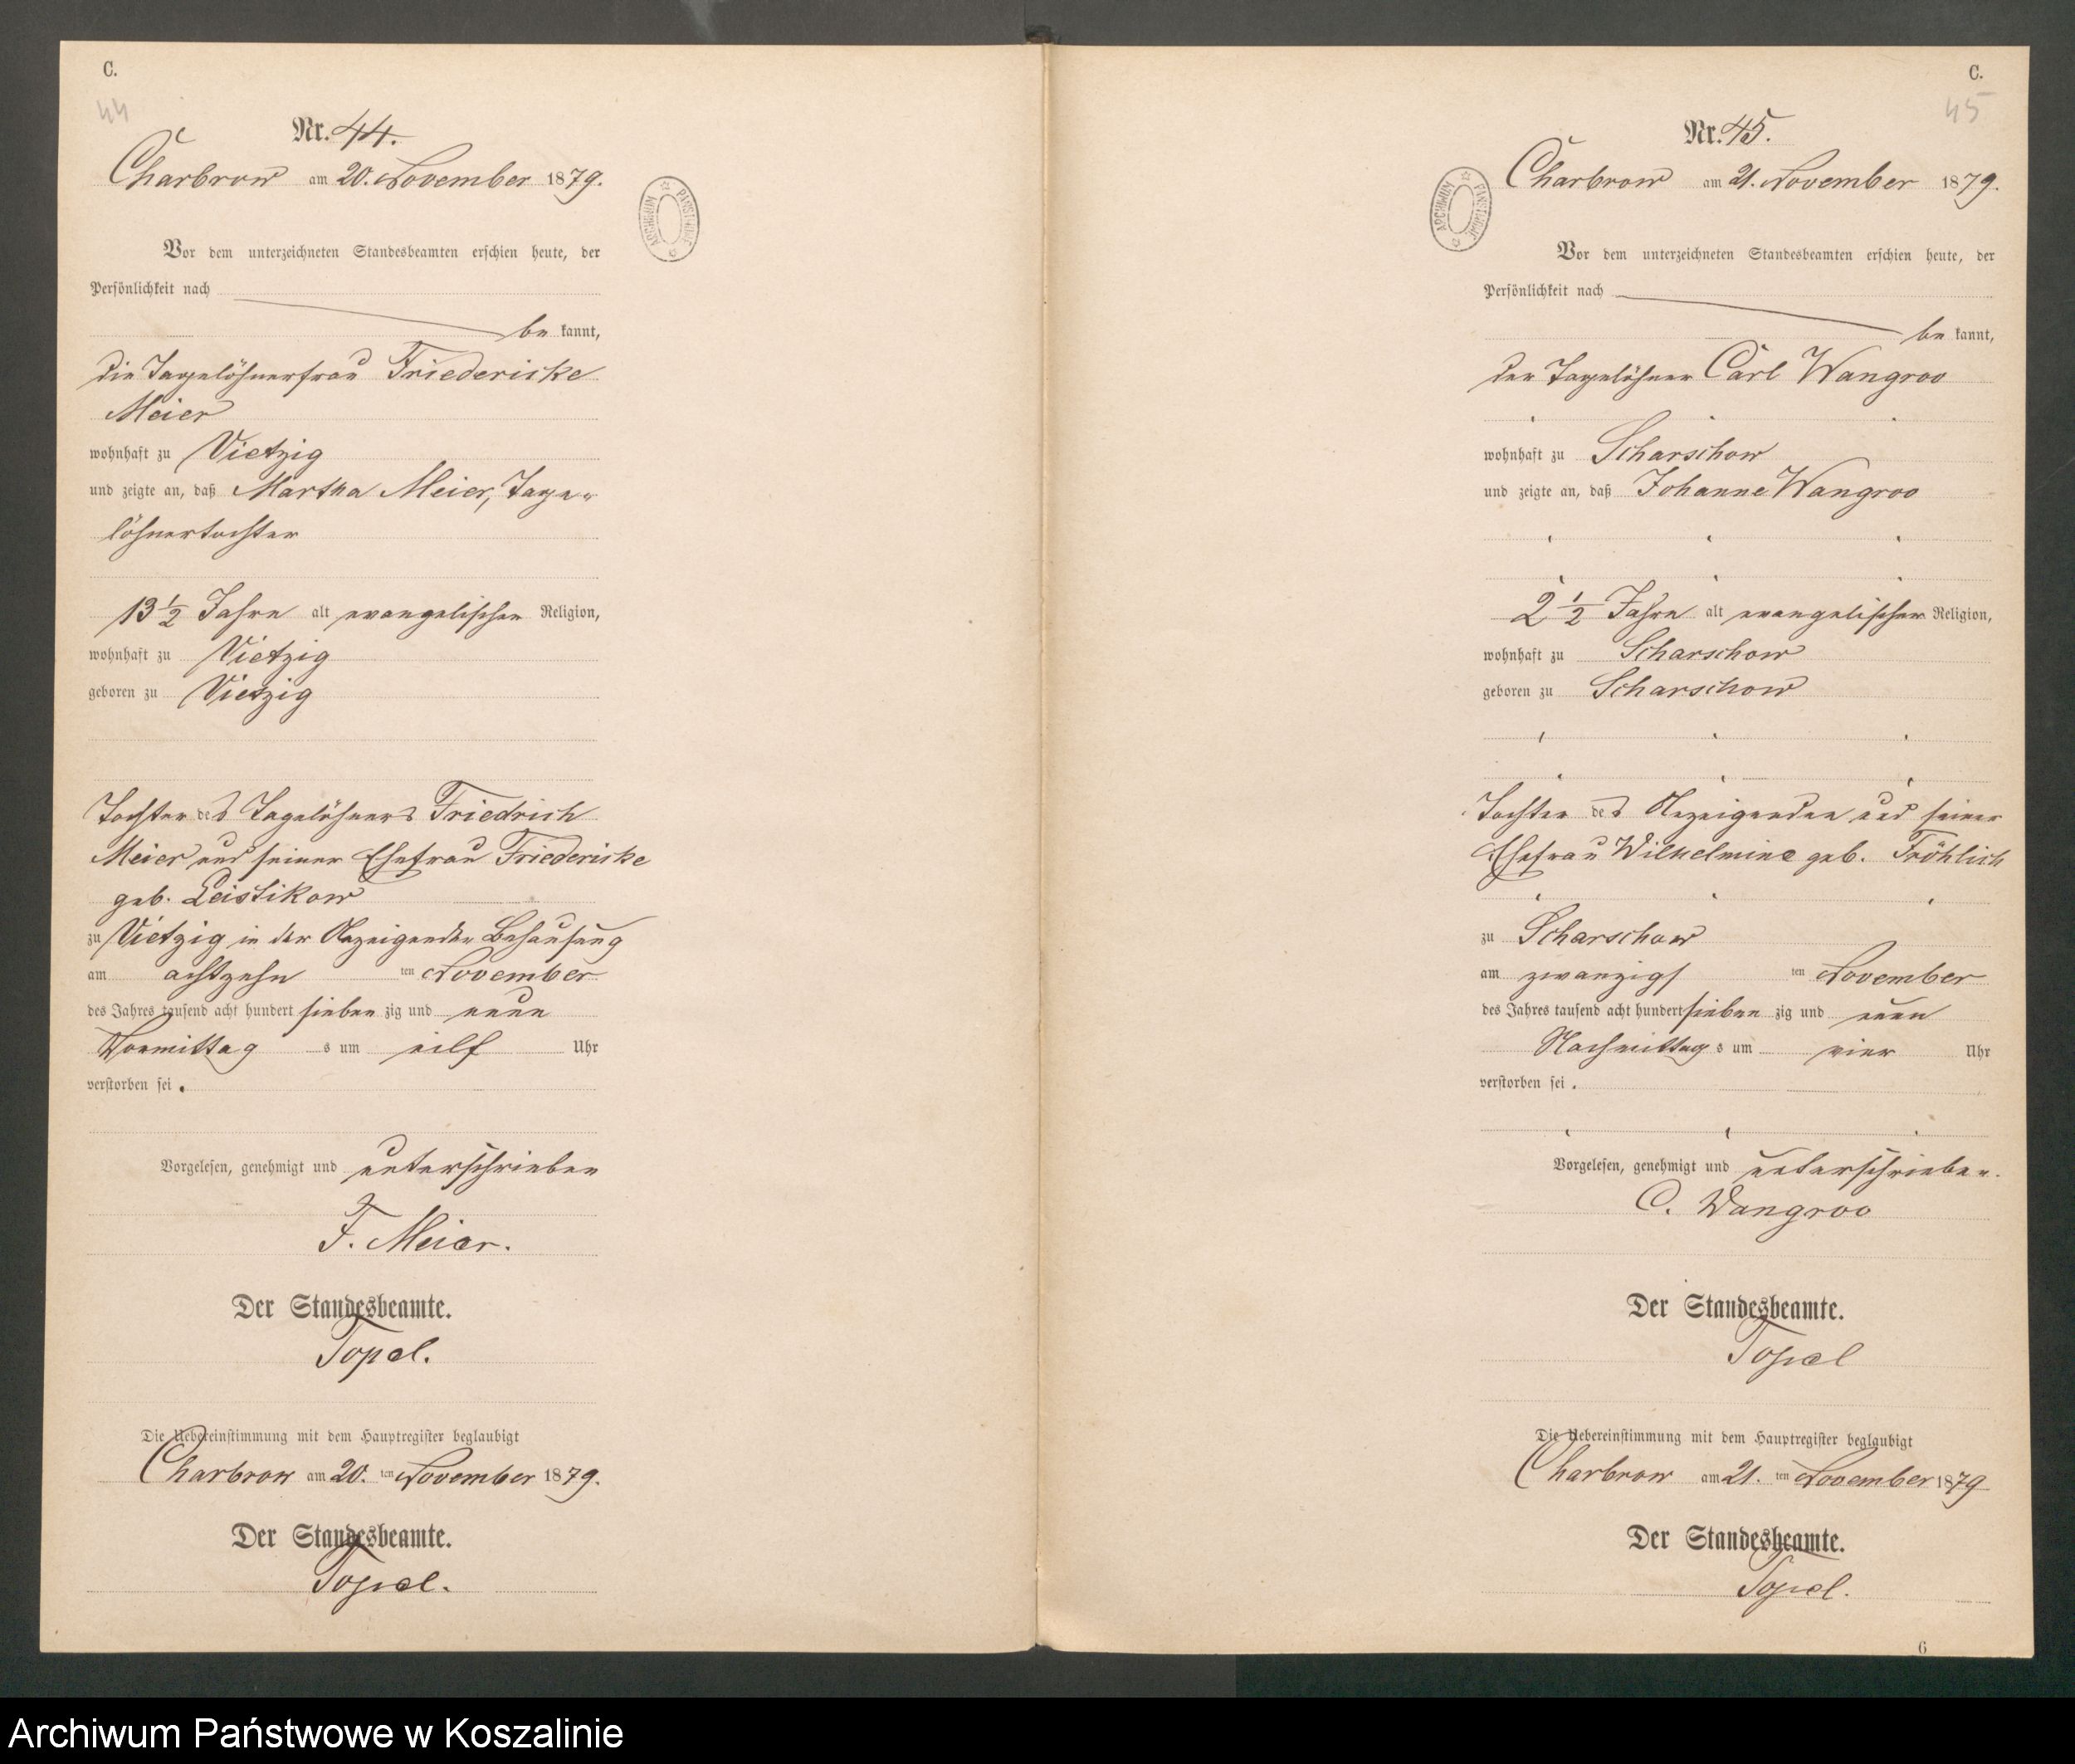 C.
44
Nr. 44.
Charbrow am 20. November 1879.
ARCHIWUM PAŃSTWOWE
Vor dem unterzeichneten Standesbeamten erschien heute, der
Persönlichkeit nach
be kannt,
die Tagelöhnerfrau Friedericke
Meier
wohnhaft zu Vietzig
und zeigte an, daß Martha Meier, Tage-
löhnertochter
13 1/2 Jahre alt evangelischer Religion,
wohnhaft zu Vietzig
geboren zu Vietzig
Tochter des Tagelöhners Friedrich
Meier und seiner Ehefrau Friedericke
geb. Leistikow
zu Vietzig in der Anzeigenden Behausung
am achtzehn ten November
des Jahres tausend acht hundert sieben zig und neun
Vormittag s um eilf Uhr
verstorben sei.
Vorgelesen, genehmigt und unterschrieben
F. Meier.
Der Standesbeamte.
Topel.
Die Uebereinstimmung mit dem Hauptregister beglaubigt
Charbrow am 20. ten November 1879.
Der Standesbeamte.
Topel.
C.
45
Nr. 45.
Charbrow am 21. November 1879.
ARCHIWUM PAŃSTWOWE
Vor dem unterzeichneten Standesbeamten erschien heute, der
Persönlichkeit nach
be kannt,
der Tagelöhner Carl Wangroo
wohnhaft zu Scharschow
und zeigte an, daß Johanne Wangroo
2 1/2 Jahre alt evangelischer Religion,
wohnhaft zu Scharschow
geboren zu Scharschow
Tochter des Anzeigenden und seiner
Ehefrau Wilhelmine geb. Fröhlich
zu Scharschow
am zwanzigs ten November
des Jahres tausend acht hundert sieben zig und neun
Nachmittag s um vier Uhr
verstorben sei.
Vorgelesen, genehmigt und unterschrieben.
C. Wangroo
Der Standesbeamte.
Topel
Die Uebereinstimmung mit dem Hauptregister beglaubigt
Charbrow am 21. ten November 1879
Der Standesbeamte.
Topel.
6
Archiwum Państwowe w Koszalinie